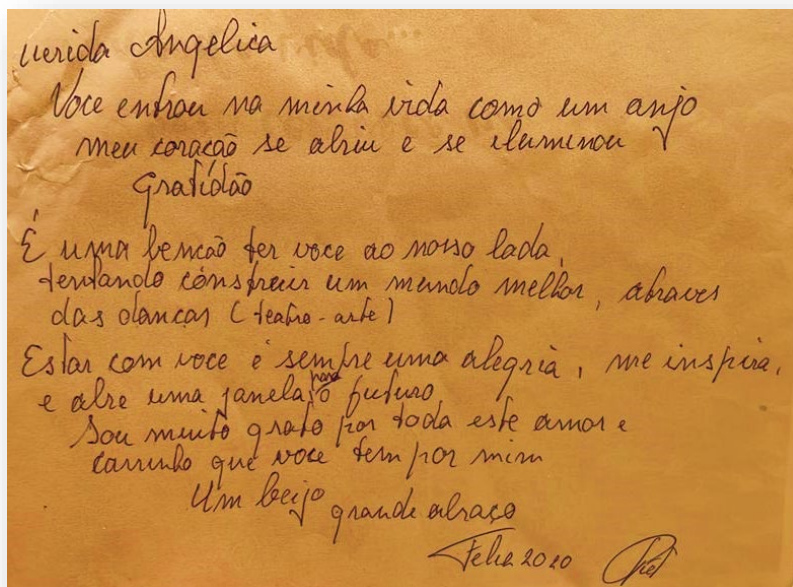 uerida Angelica
Voce entrou na minha vida como um anjo
meu coração se abriu e se iluminou
Gratidão
É uma bencão ter voce ao nosso lada,
tentando construir um mundo melhor, atraves
das dancas (teatro-arte)
Estar com voce é sempre uma alegria, me inspira,
e abre uma janela para o futuro
Sou muito grato por toda este amor e
carrinho que voce tem por mim
Um beijo grande abraço
Feliz 2020